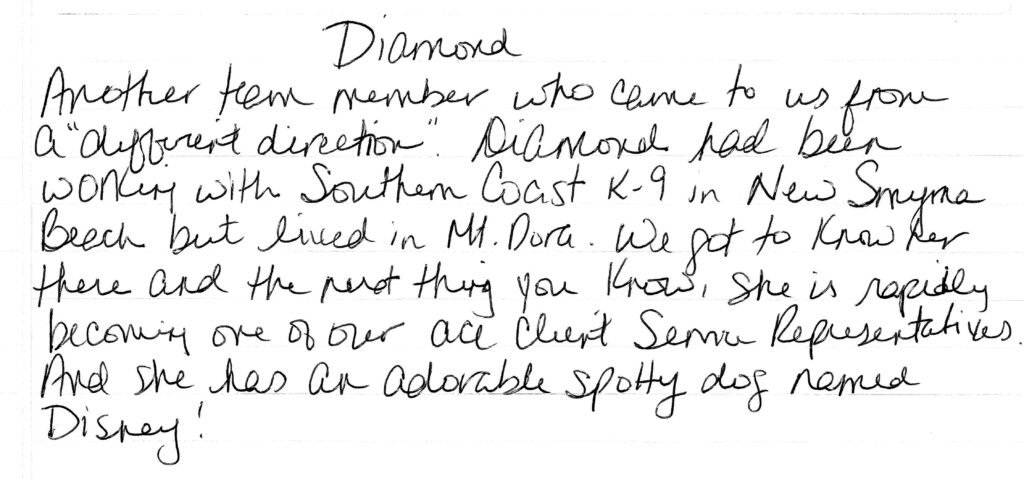 Diamond
Another team member who came to us from
a "different direction". Diamond had been
working with Southern Coast K-9 in New Smyrna
Beach but lived in Mt. Dora. We got to know her
there and the next thing you know, she is rapidly
becoming one of our ace Client Service Representatives.
And she has an adorable spotty dog named
Disney!